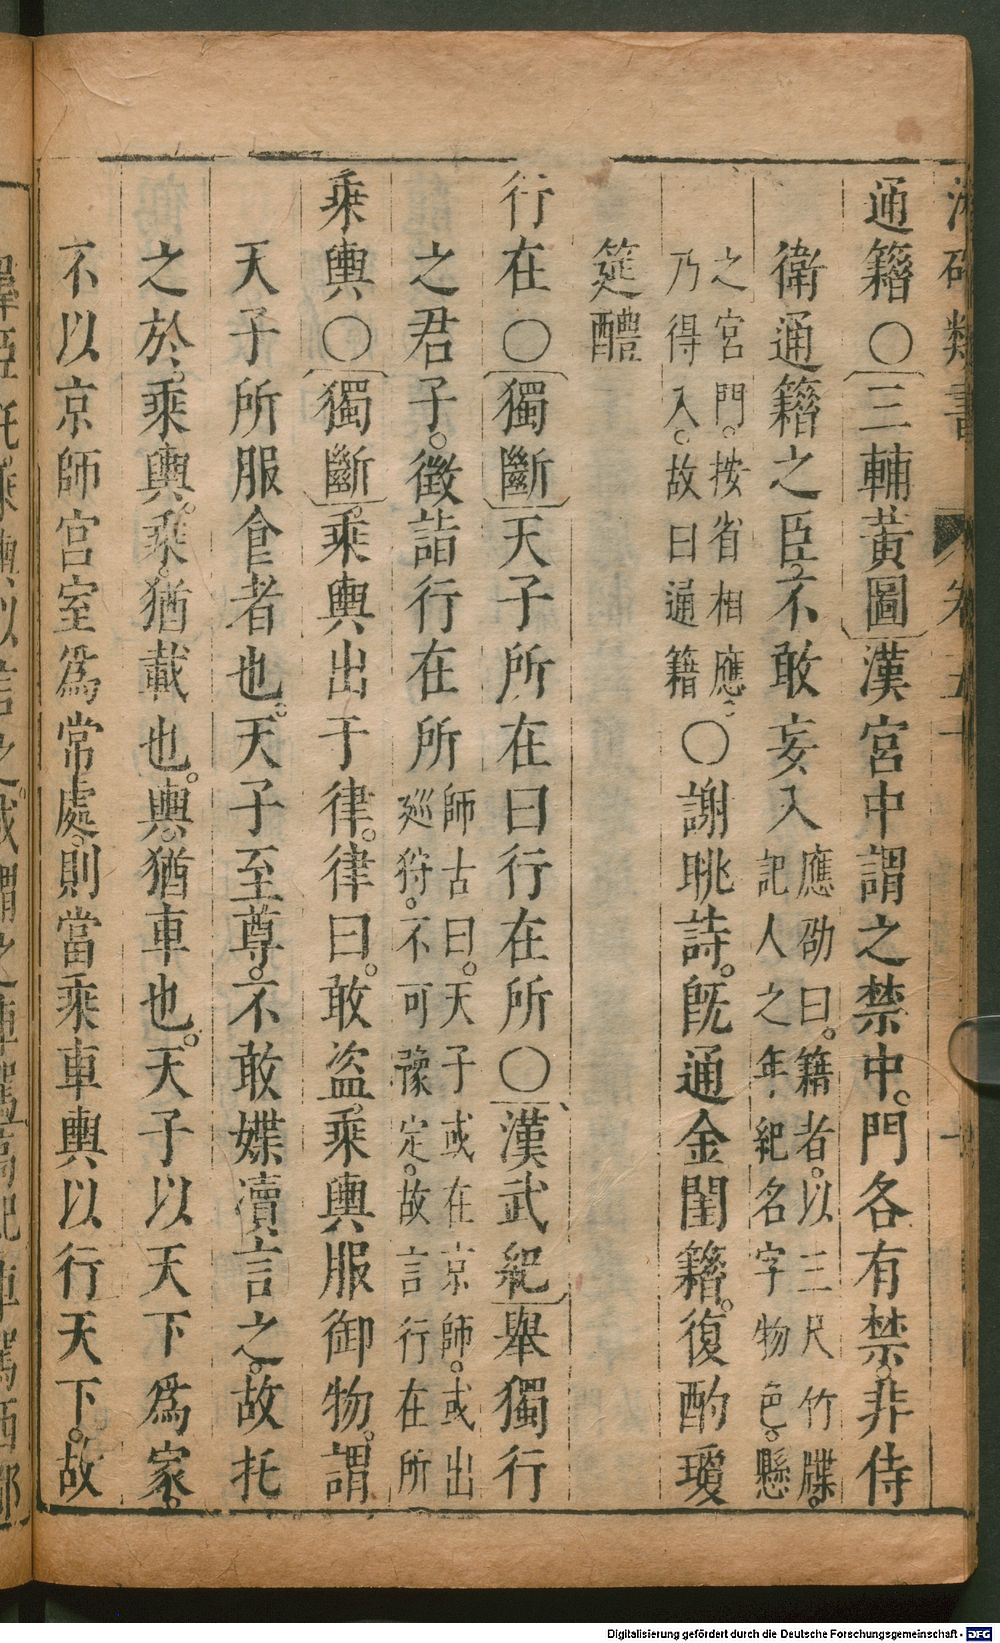 通籍〇三輔黃圖漢宮中謂之禁中。門各有禁。非侍
衛通籍之臣。不敢妄入應劭曰。籍者。以三尺竹牒。記人之年紀名字物色。懸
之宮門。按省相應。乃得入。故曰通籍〇謝眺詩。旣通金閨籍。復酌瓊
筵醴
行在〇獨斷天子所在曰行在所〇漢武紀舉獨行
之君子。徵詣行在所師古曰。天子或在京師。或出廵狩。不可豫定。故言行在所
乘輿〇獨斷乘輿出于律。律曰。敢盜乘輿服御物。謂
天子所服食者也。天子至尊。不敢媟瀆言之。故托
之於乘輿。乘。猶載也。輿。猶車也。天子以天下爲家。
不以京師宮室爲常處。則當乘車輿以行天下。故
Digitalisierung gefördert durch die Deutsche Forschungsgemeinschaft - DFG